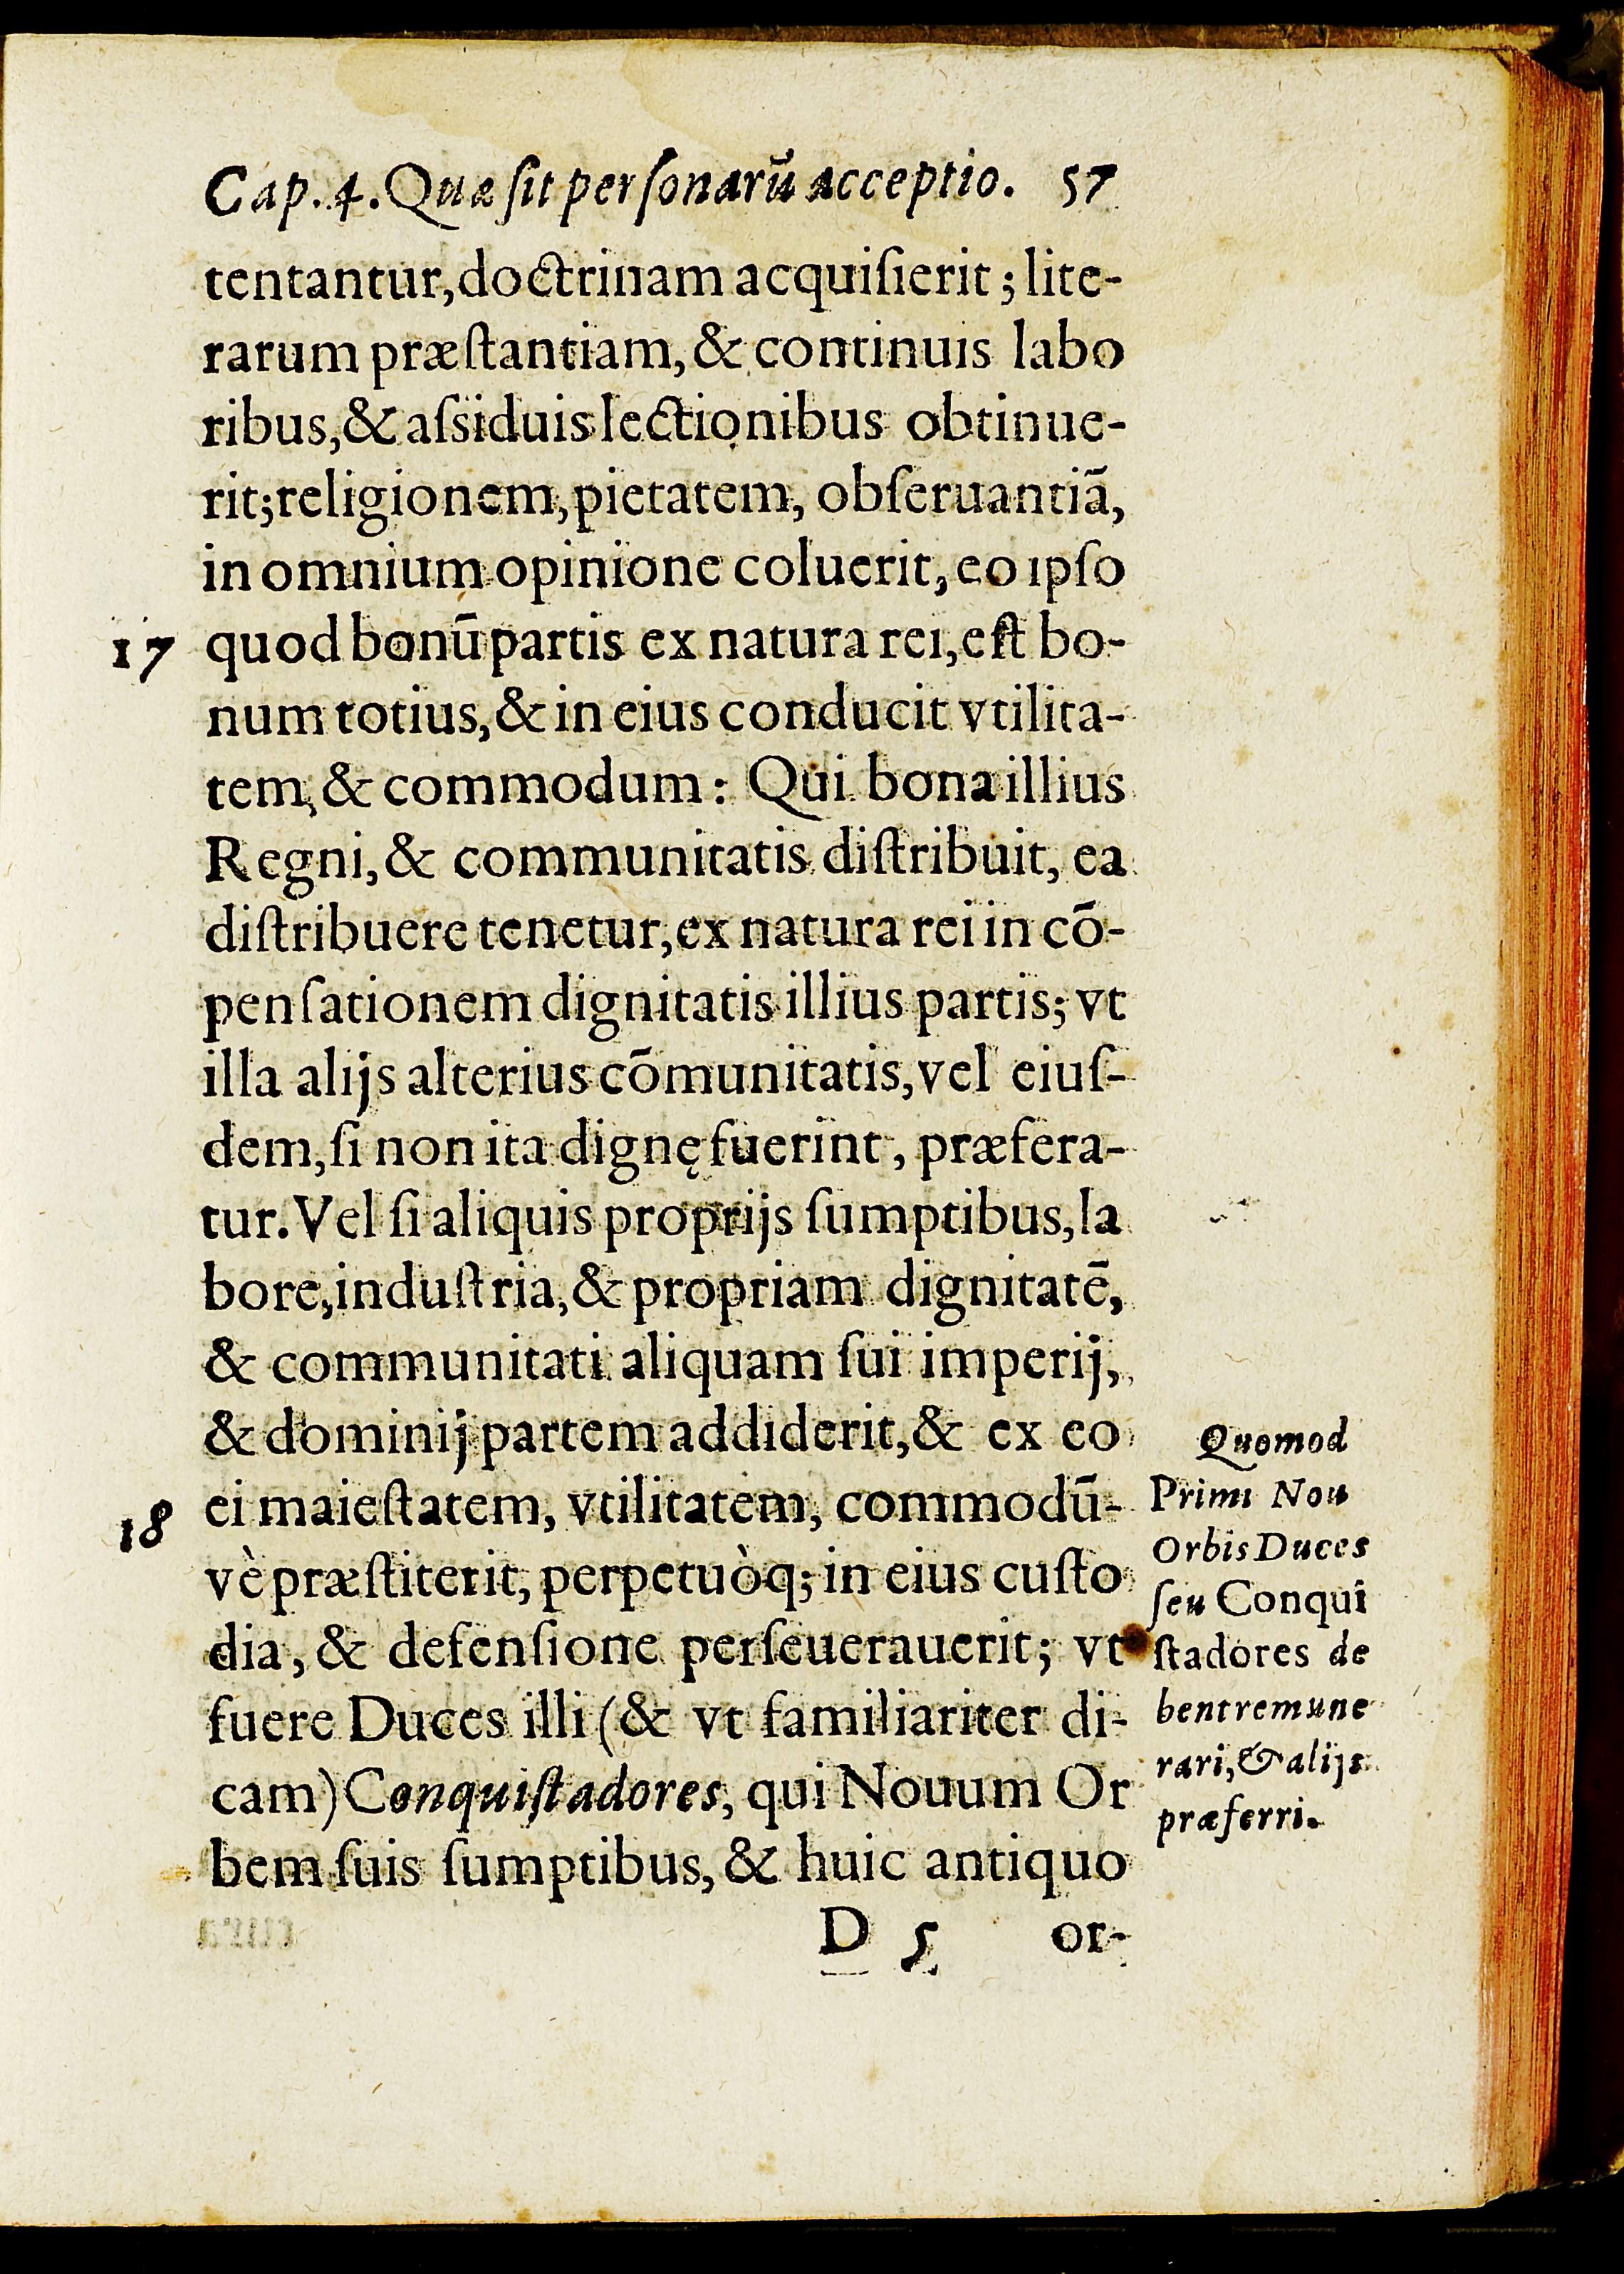 Cap. 4. Quæ ſit perſonarũ acceptio. 57
tentantur, doctrinam acquiſierit; lite-
rarum præſtantiam, & continuis labo
ribus, & aſsiduis lectionibus obtinue-
rit; religionem, pietatem, obſeruantiã,
in omnium opinione coluerit, eo ipſo
17 quod bonũ partis ex natura rei, eſt bo-
num totius, & in eius conducit vtilita-
tem, & commodum: Qui bona illius
Regni, & communitatis diſtribuit, ea
diſtribuere tenetur, ex natura rei in cõ-
penſationem dignitatis illius partis; vt
illa alijs alterius cõmunitatis, vel eiuſ-
dem, ſi non ita dignę fuerint, præfera-
tur. Vel ſi aliquis proprijs ſumptibus, la
bore, induſtria, & propriam dignitatẽ,
& communitati aliquam ſui imperij,
& dominij partem addiderit, & ex eo
18 ei maieſtatem, vtilitatem, commodũ-
vè præſtiterit, perpetuòq; in eius cuſto
dia, & defenſione perſeuerauerit; vt
fuere Duces illi (& vt familiariter di-
cam) Conquiſtadores, qui Nouum Or
bem ſuis ſumptibus, & huic antiquo
D 5 or-
Quomod
Primi Nou
Orbis Duces
ſeu Conqui
ſtadores de
bent remune
rari, & alijs
præferri.